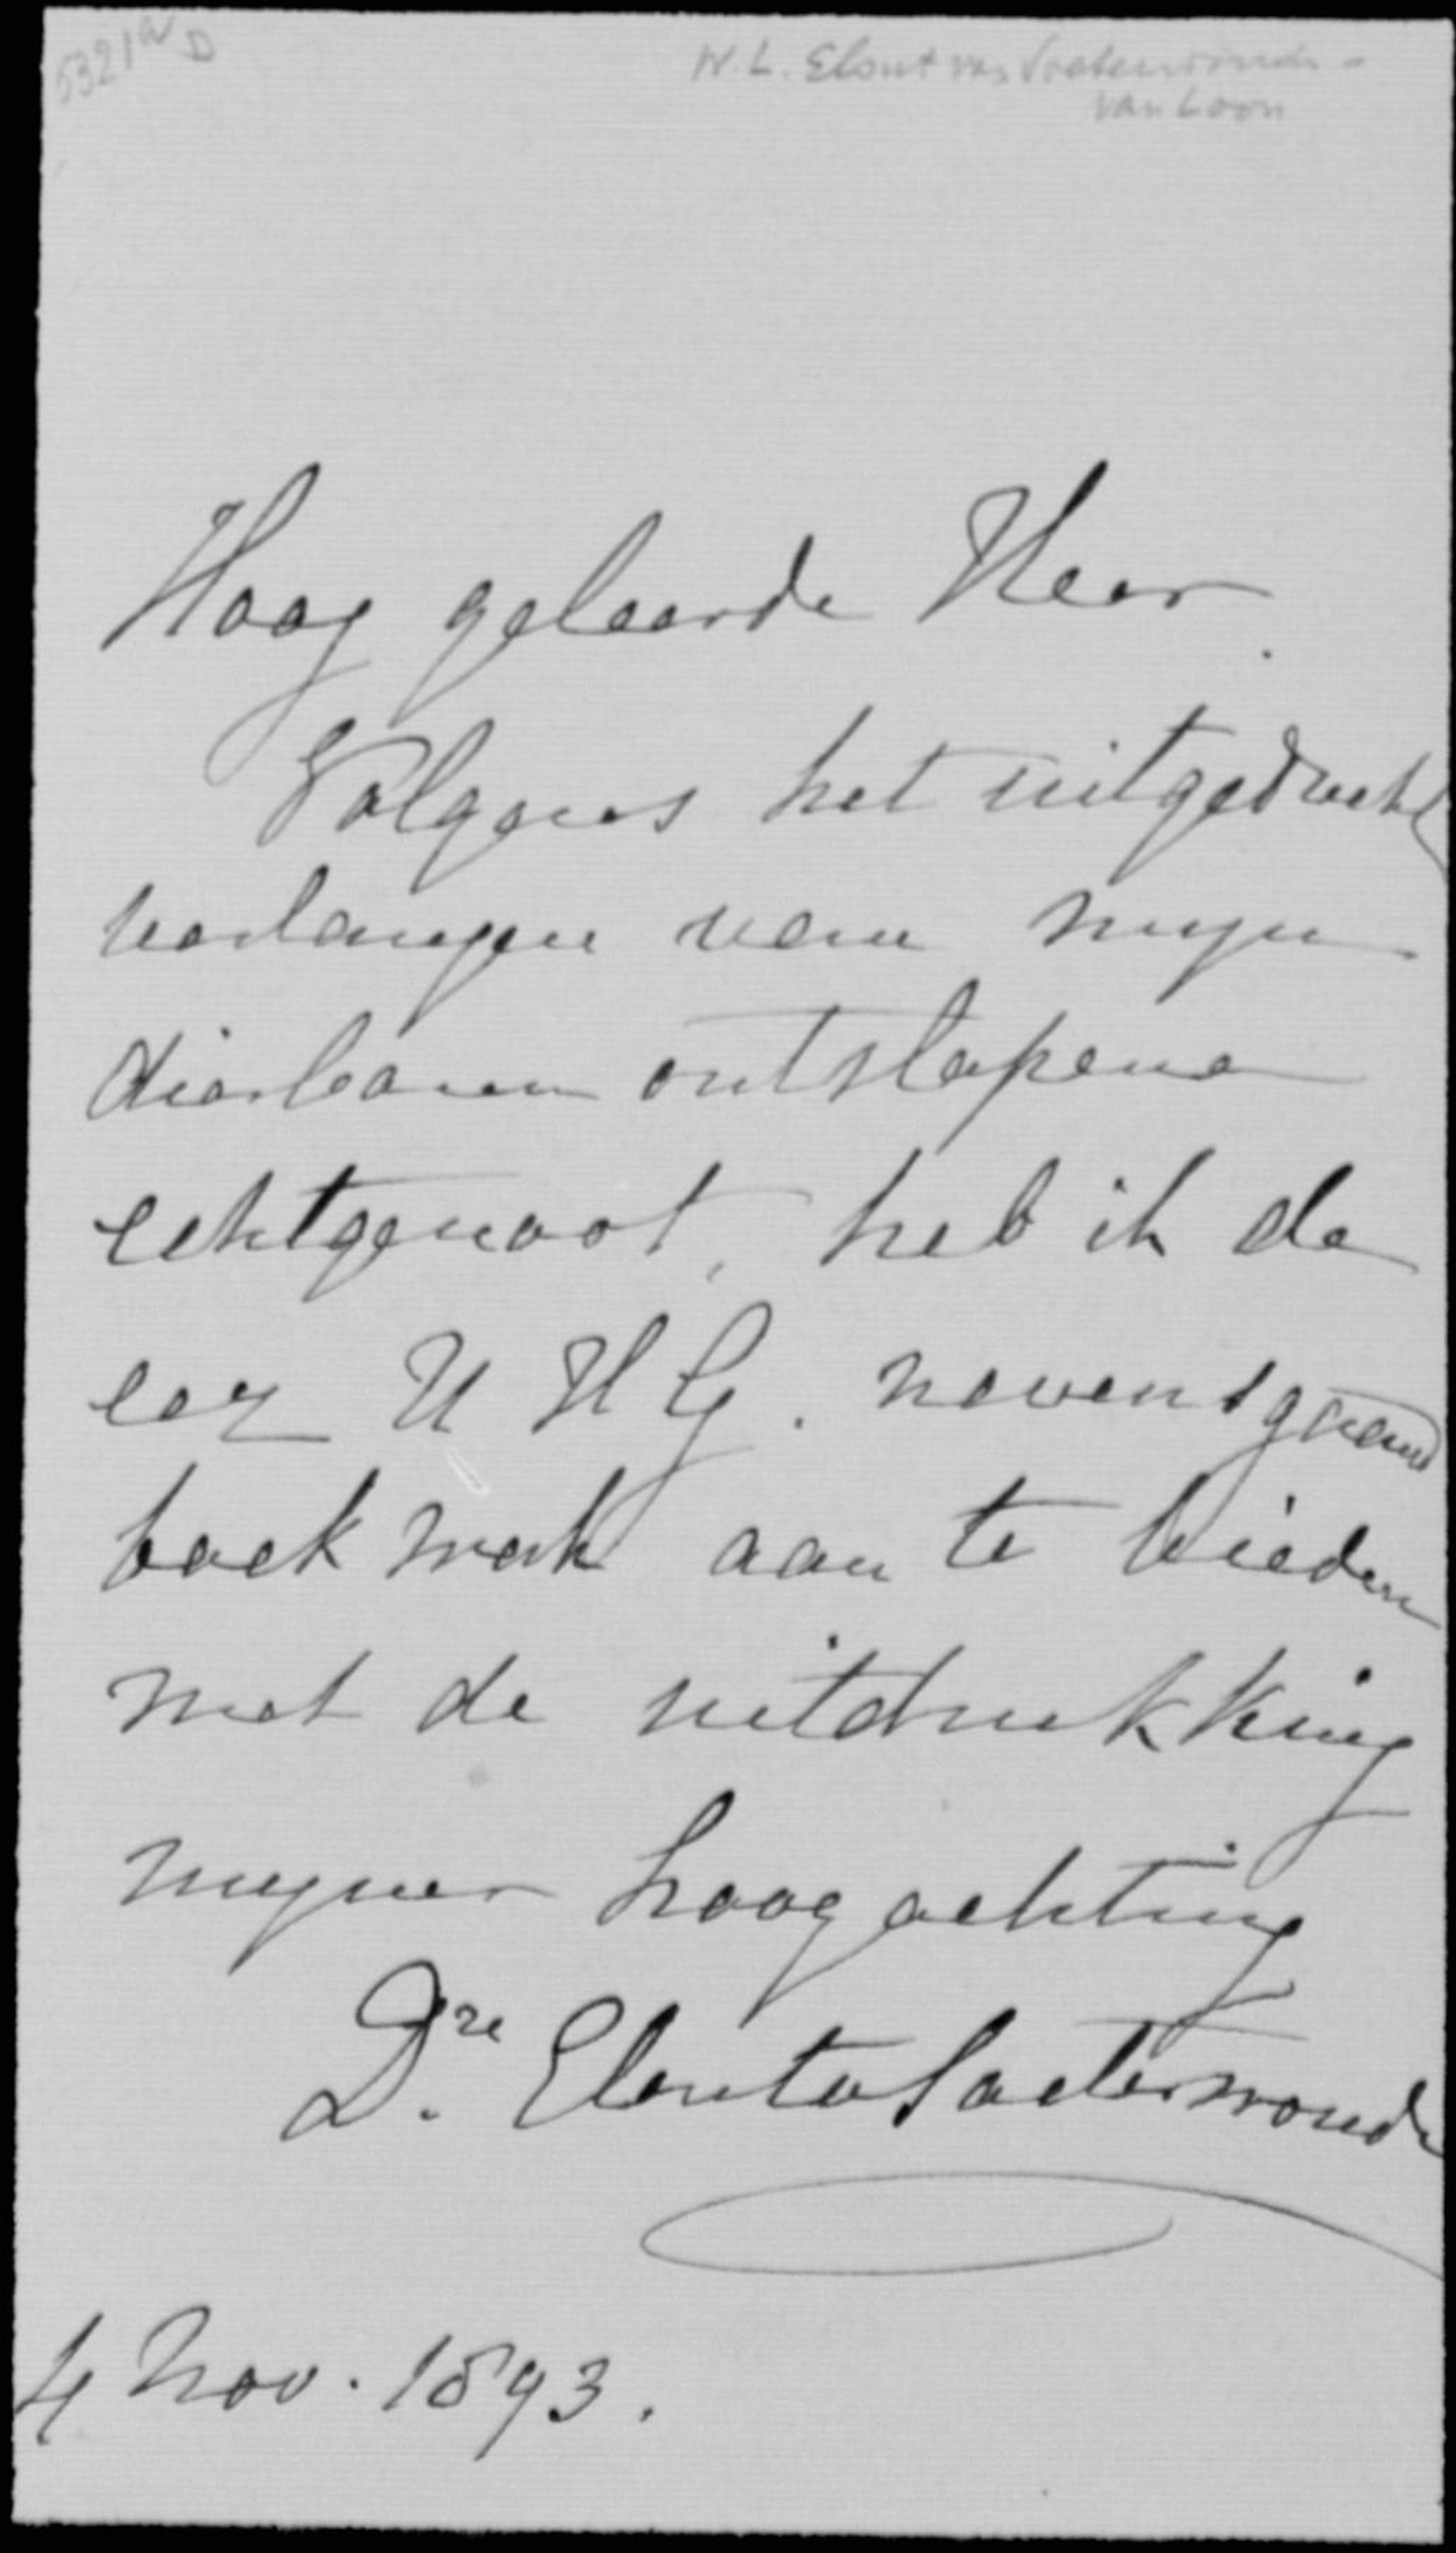 5321 a D
W. L. Elout van Soeterwoude -
van Loon
Hoog geleerde Heer
Volgens het uitgedrukt
verlangen van mijn
dierbaren ontslapene
echtgenoot, heb ik de
eer U H G. nevensgaand
boekwerk aan te bieden
met de uitdrukking
mijner hoogachting
Dre Elout v Soeterwoude
4 Nov. 1893.